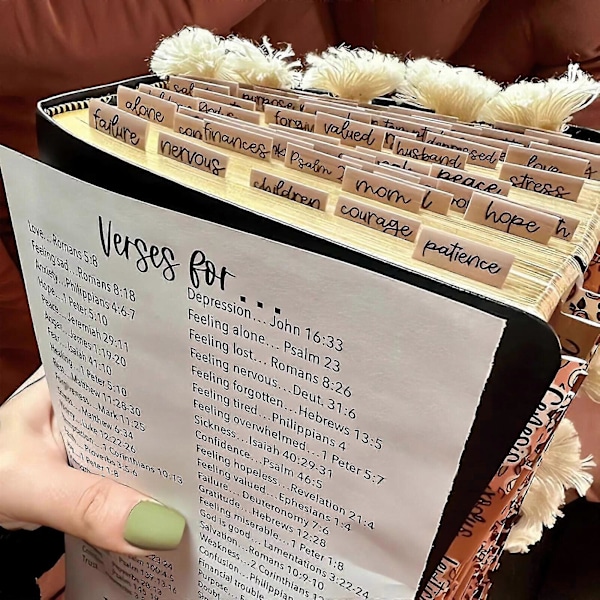 sal
alone
purpose
failure
finances
forgiv
valued
depressed
husband
love
nervous
Psalm
peace
stress
children
mom
hope
courage
patience
Verses for . . .
Love... Romans 5:8
Feeling sad... Romans 8:18
Anxiety... Philippians 4:6-7
Hope... 1 Peter 5:10
Peace... Jeremiah 29:11
Anger... James 1:19-20
Fear... Isaiah 41:10
Healing... 1 Peter 5:10
Matthew 11:28-30
Forgiveness... Mark 11:25
Matthew 6:34
Luke 12:22-26
1 Corinthians 10:13
Proverbs 3:5-6
1 Peter 1:8
Trust
Depression... John 16:33
Feeling alone... Psalm 23
Feeling lost... Romans 8:26
Feeling nervous... Deut. 31:6
Feeling forgotten... Hebrews 13:5
Feeling tired... Philippians 4
Feeling overwhelmed... 1 Peter 5:7
Sickness... Isaiah 40:29-31
Confidence... Psalm 46:5
Feeling hopeless... Revelation 21:4
Feeling valued... Ephesians 1:4
Failure... Deuteronomy 7:6
Gratitude... Hebrews 12:28
Feeling miserable... 1 Peter 1:8
God is good... Lamentations 3:22-24
Salvation... Romans 10:9-10
Weakness... 2 Corinthians 12
Confusion... Philippian
Financial trouble
Purpose...
Doubt